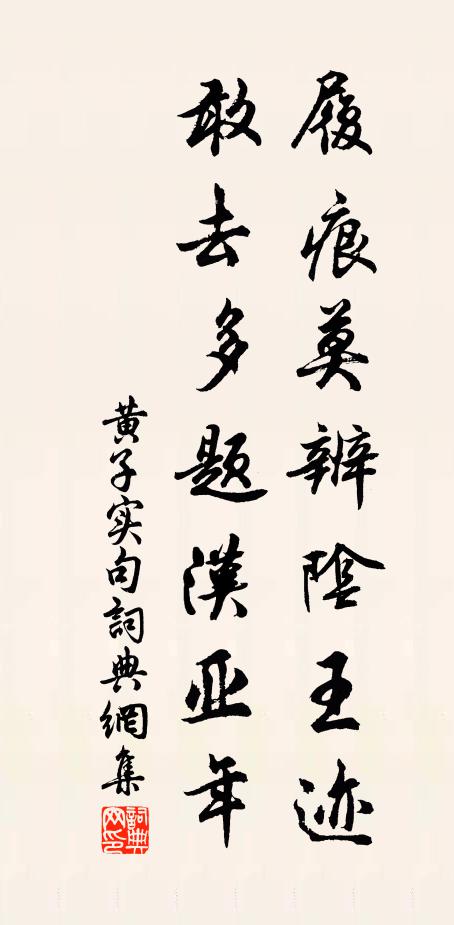 履痕莫辨陰王迹
敢去多題漢亚年
黄子实句詞典網集
詞典网印